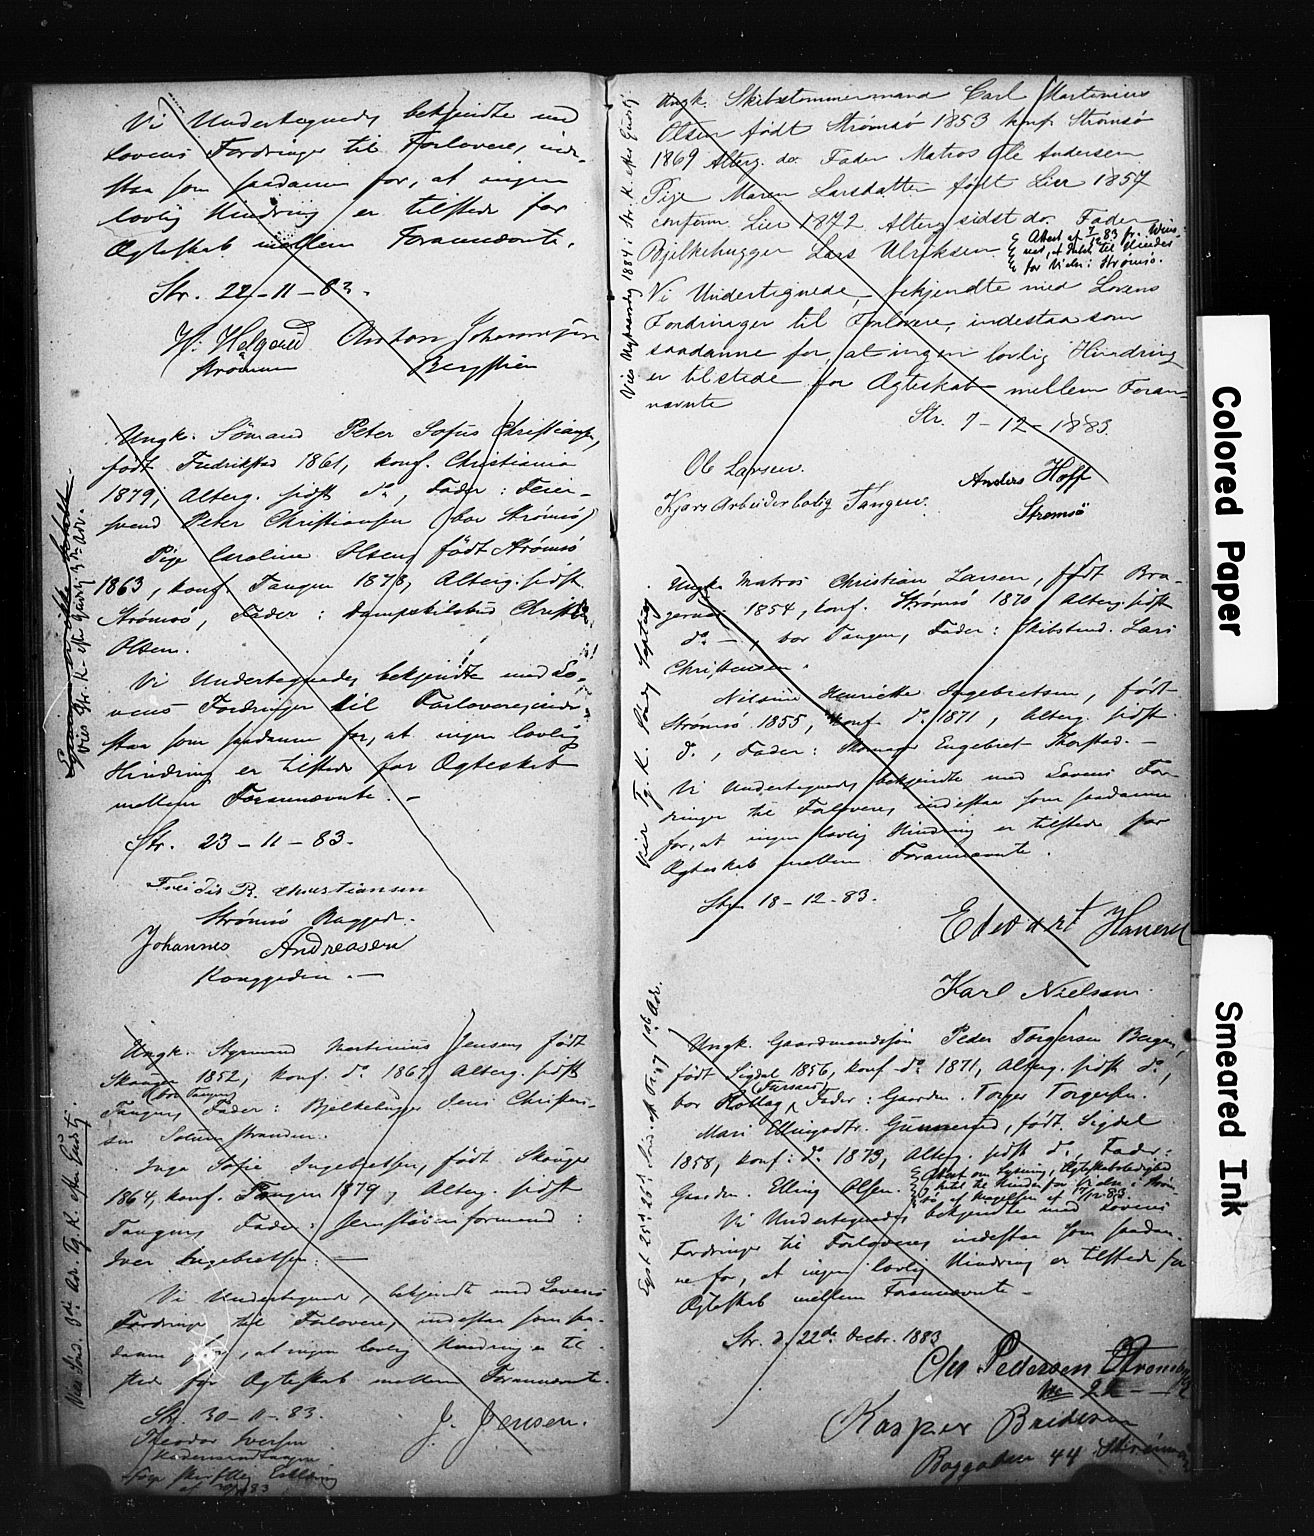 Vi Undertegnede, bekjendte med
Lovens Fordringer til Forlovere, inde-
staa som saadanne for, at ingen
lovlig Hindring er tilstede for
Ægteskab mellem Forannævnte.
Str. 22-11-83.
H. Helgerud Anton Johannesen
Strømmen Bergstien
Ungk. Sømand Peter Sofus Christiansen,
født Fredrikstad 1861, konf. Christiania
1879, Alterg. sidst do, Fader: Feier-
svend Peter Christiansen (bor Strømsø)
Pige Caroline Olsen, født Strømsø
1863, konf. Tangen 1878, Alterg. sidst
Strømsø, Fader: Christ.
Olsen.
Vi Undertegnede, bekjendte med Lo-
vens Fordringer til Forlovere, inde-
staa som saadanne for, at ingen lovlig
Hindring er tilstede for Ægteskab
mellem Forannævnte. -
Str. 23-11-83.
R. Christiansen
Strømsø
Johannes Andreasen
Konggaden. -
Vies Str. K. efter Gudstj. 3die Adv.
Ungk. Styrmand Martinius Jensen, født
Skouger 1852, konf. do 1867, Alterg. sidst
(bor Tangen)
Tangen, Fader: Bjelkehugger Jens Christen-
sen
Inga Sofie Ingebretsen, født Skouger
1864, konf. Tangen 1879, Alterg. sidst
Tangen, Fader: formand:
Iver Ingebretsen. -
Vi Undertegnede, bekjendte med Lovens
Fordringer til Forlovere, indestaa som saa-
danne for, at ingen lovlig Hindring er til-
stede for Ægteskab mellem Forannævnte.
Str. 30-11-83.
J. Jensen.
Theodor Iversen
Tangen
Vies Sønd. 3die Adv. Tg. K. efter Gudstj.
Ungk. Skibstømmermand Carl Martinius
Olsen født Strømsø 1853 konf. Strømsø
1869 Alterg. do Fader Matros Ole Andersen
Pige Maren Larsdatter født Lier 1857
conferm Lier 1872, Alterg. sidst do. Fader
Bjelkehugger Lars Ulriksen.
Attest af 7/12 83 fr.
at Intet til Hinder
for Vielse i Strømsø.
Vi Undertegnede, bekjendte med Lovens
Fordringer til Forlovere, indestaa som
saadanne for, at ingen lovlig Hindring
er tilstede for Ægteskab mellem Foran-
nævnte
Str. 7-12-1883.
Ole Larsen. Anders Hoff
Kjørs Arbeiderbolig Tangen. Strømsø
Vies Nytaarsdag 1884 i Str. K. efter Gudstj.
Ungk. Matros Christian Larsen, født Bra-
gernæs 1854, konf. Strømsø 1870, Alterg. sidst
do -, bor Tangen, Fader: Skibstmd. Lars
Christensen.
Nilsine Henrikke Ingebretsen, født
Strømsø 1855, konf. do 1871, Alterg. sidst
do, Fader: Engebret Thorstad. -
Vi Undertegnede, bekjendte med Lovens For-
dringer til Forlovere, indestaa som saadanne
for, at ingen lovlig Hindring er tilstede for
Ægteskab mellem Forannævnte.
Str. 18-12-83.
Edvart Hansen
Karl Nielsen.
Ungk. Gaardmandssøn Peder Torgersen Bergan,
født Sigdal 1856, konf. do 1871, Alterg. sidst do,
bor Rollag, Fader: Gaardm. Torger Torgersen.
Mari Ellingsdtr. født Sigdal
1858, konf: do 1873, Alterg. sidst do, Fader:
Gaardm. Elling Olsen.
Attest om Lysning, Ægteskabsledighed
Intet til Hinder for Vielse i Strøm-
sø
Vi Undertegnede, bekjendte med Lovens
Fordringer til Forlovere, indestaa som saadan-
ne for, at ingen lovlig Hindring er tilstede for
Ægteskab mellem Forannævnte -
Str. d. 22de Decbr. 1883
Chr Pedersen
Kasper
44 Strømsø
Colored Paper
Smeared Ink